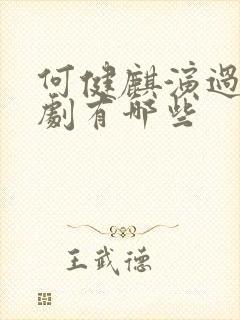 何健麒演過
劇有哪些
王武德